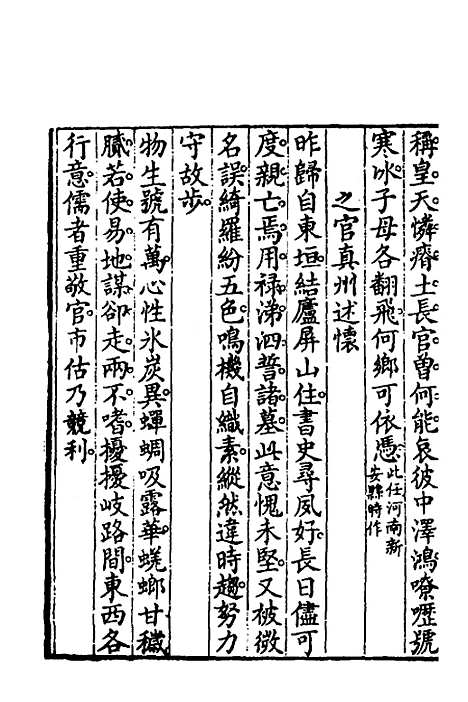 稱皇天憐瘠土長官曽何能哀彼中澤鴻嘹嚦號
寒冰子母各翻飛何鄉可依憑此任河南新安縣時作
之官真州述懷
昨歸自東垣結廬屏山住書史尋夙好長日儘可
度親亡焉用禄涕泗誓諸墓此意愧未堅又被微
名誤綺羅紛五色鳴機自織素縱然違時趨努力
守故步
物生號有萬心性氷炭異蟬蜩吸露華蜣螂甘穢
膩若使易地謀卻走兩不嗜擾擾岐路間東西各
行意儒者重敬官市估乃競利